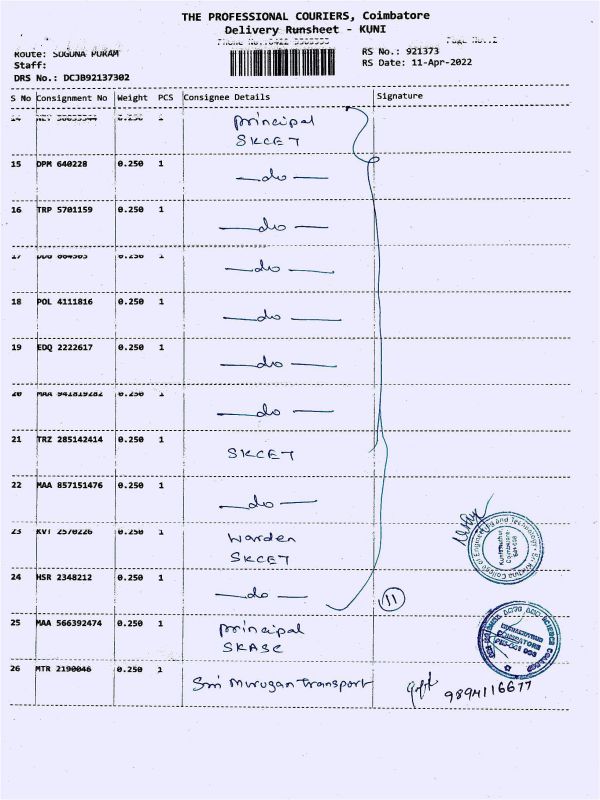 THE PROFESSIONAL COURIERS, Coimbatore
Delivery Runsheet - KUNI
Route: SUGUNA PURAM
RS No.: 921373
Staff:
RS Date: 11-Apr-2022
DRS No.: DCJB92137302
S No Consignment No Weight PCS Consignee Details Signature
14 0.250 1 principal
SKCET
15 DPM 640228 0.250 1 —do—
16 TRP 5701159 0.250 1 —do—
17 0.250 1 —do—
18 POL 4111816 0.250 1 —do—
19 EDQ 2222617 0.250 1 —do—
20 MAA 941819282 0.250 1 —do—
21 TRZ 285142414 0.250 1 SKCET
22 MAA 857151476 0.250 1 —do—
23 KVT 2570226 0.250 1 Warden
SKCET
24 HSR 2348212 0.250 1 —do— 11
25 MAA 566392474 0.250 1 principal
SKASC
26 MTR 2190046 0.250 1 Sri Murugan Transport 9894116677
College of Engineering and Technology
Coimbatore
ARTS AND SCIENCE COLLEGE
COIMBATORE